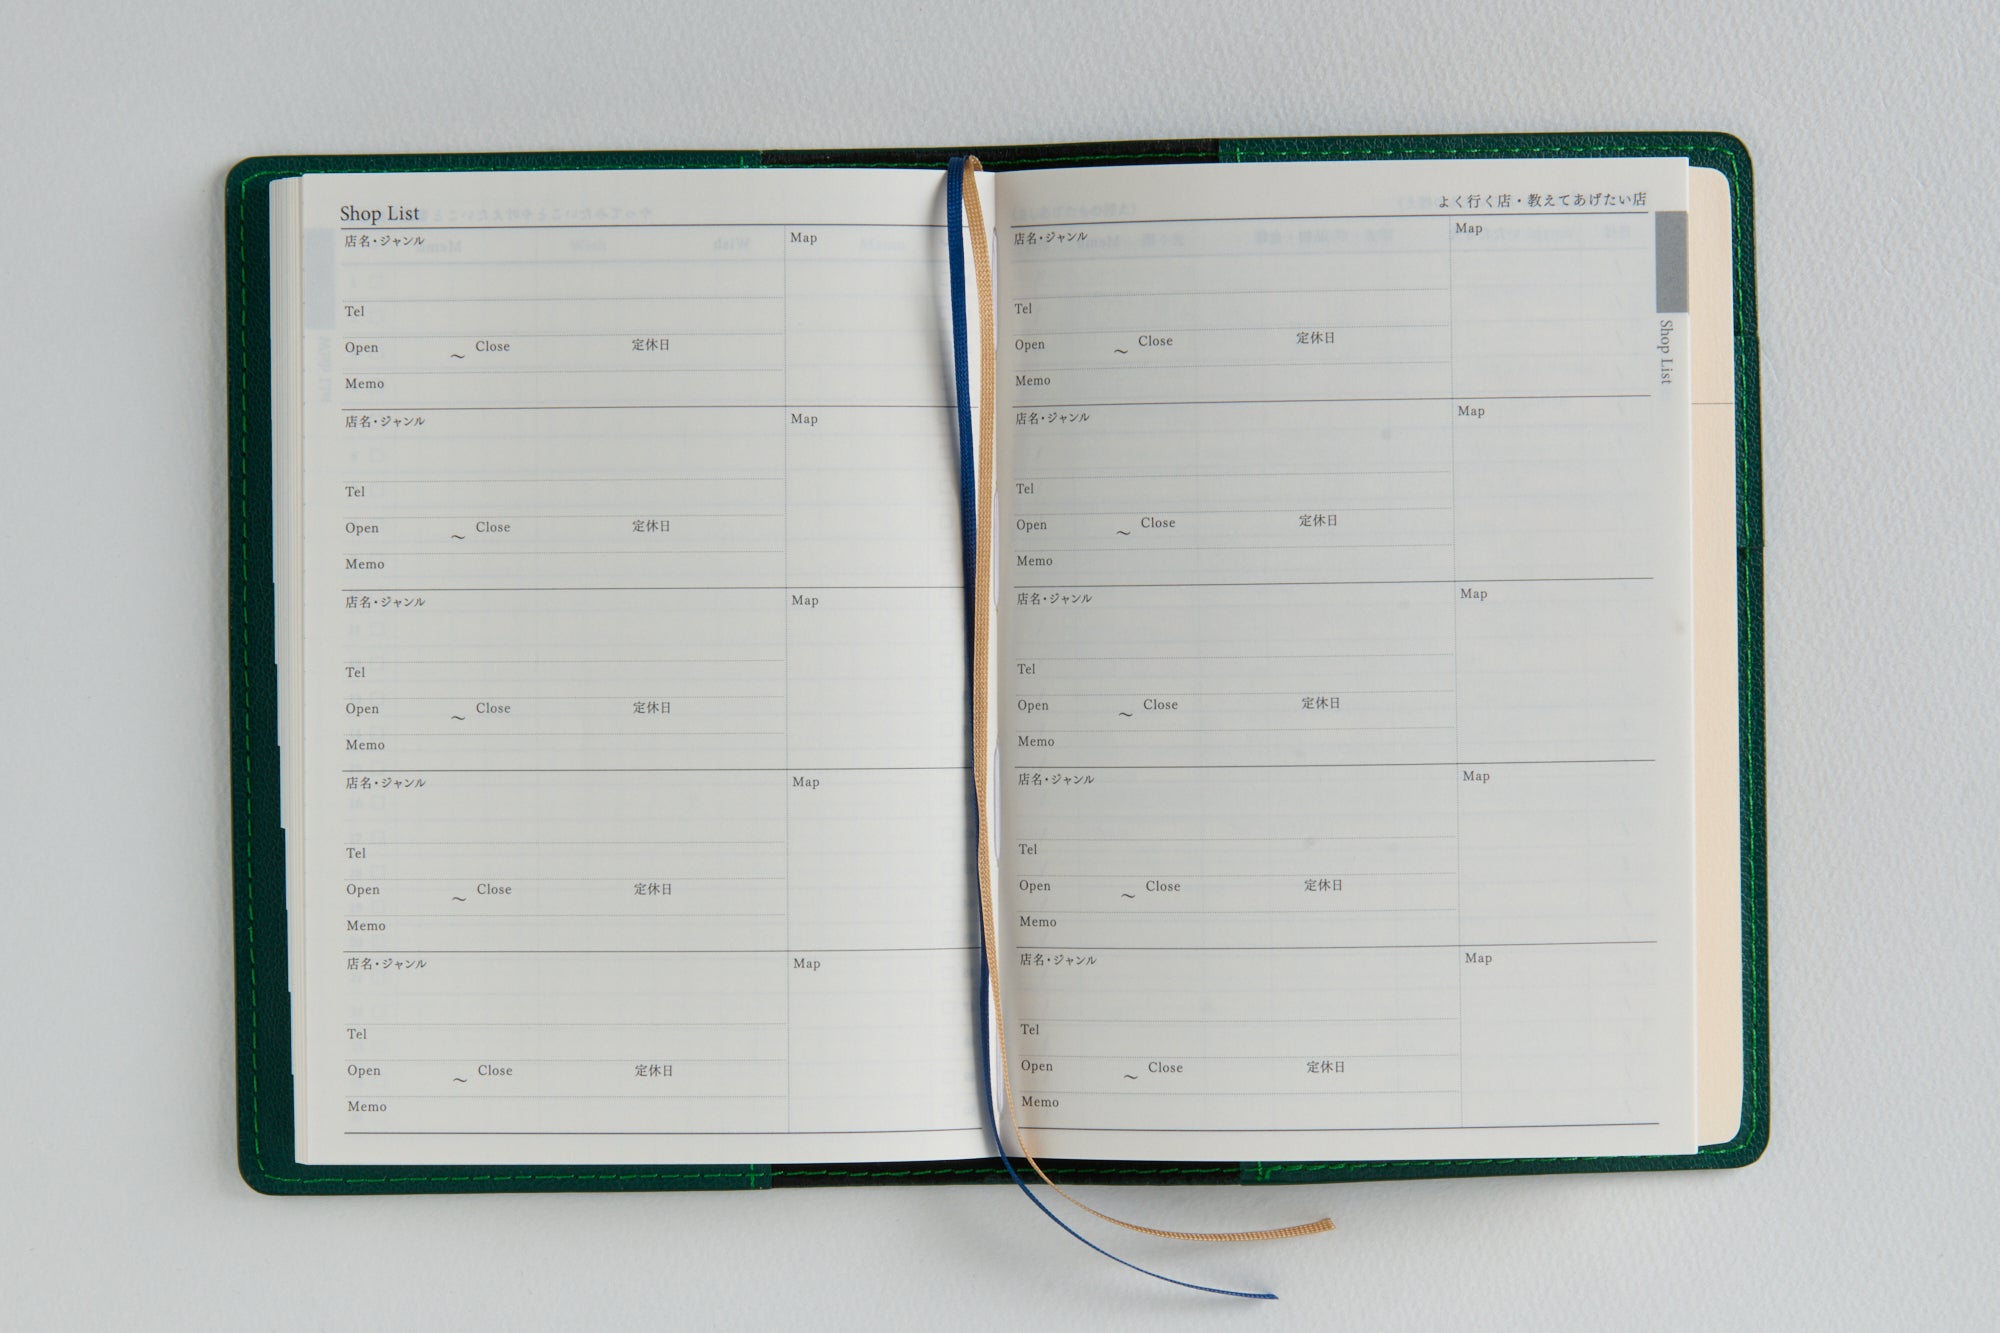 Shop List
店名・ジャンル Map
Tel
Open ～ Close 定休日
Memo
店名・ジャンル Map
Tel
Open ～ Close 定休日
Memo
店名・ジャンル Map
Tel
Open ～ Close 定休日
Memo
店名・ジャンル Map
Tel
Open ～ Close 定休日
Memo
店名・ジャンル Map
Tel
Open ～ Close 定休日
Memo
よく行く店・教えてあげたい店
店名・ジャンル Map
Tel
Open ～ Close 定休日
Memo
店名・ジャンル Map
Tel
Open ～ Close 定休日
Memo
店名・ジャンル Map
Tel
Open ～ Close 定休日
Memo
店名・ジャンル Map
Tel
Open ～ Close 定休日
Memo
店名・ジャンル Map
Tel
Open ～ Close 定休日
Memo
Shop List